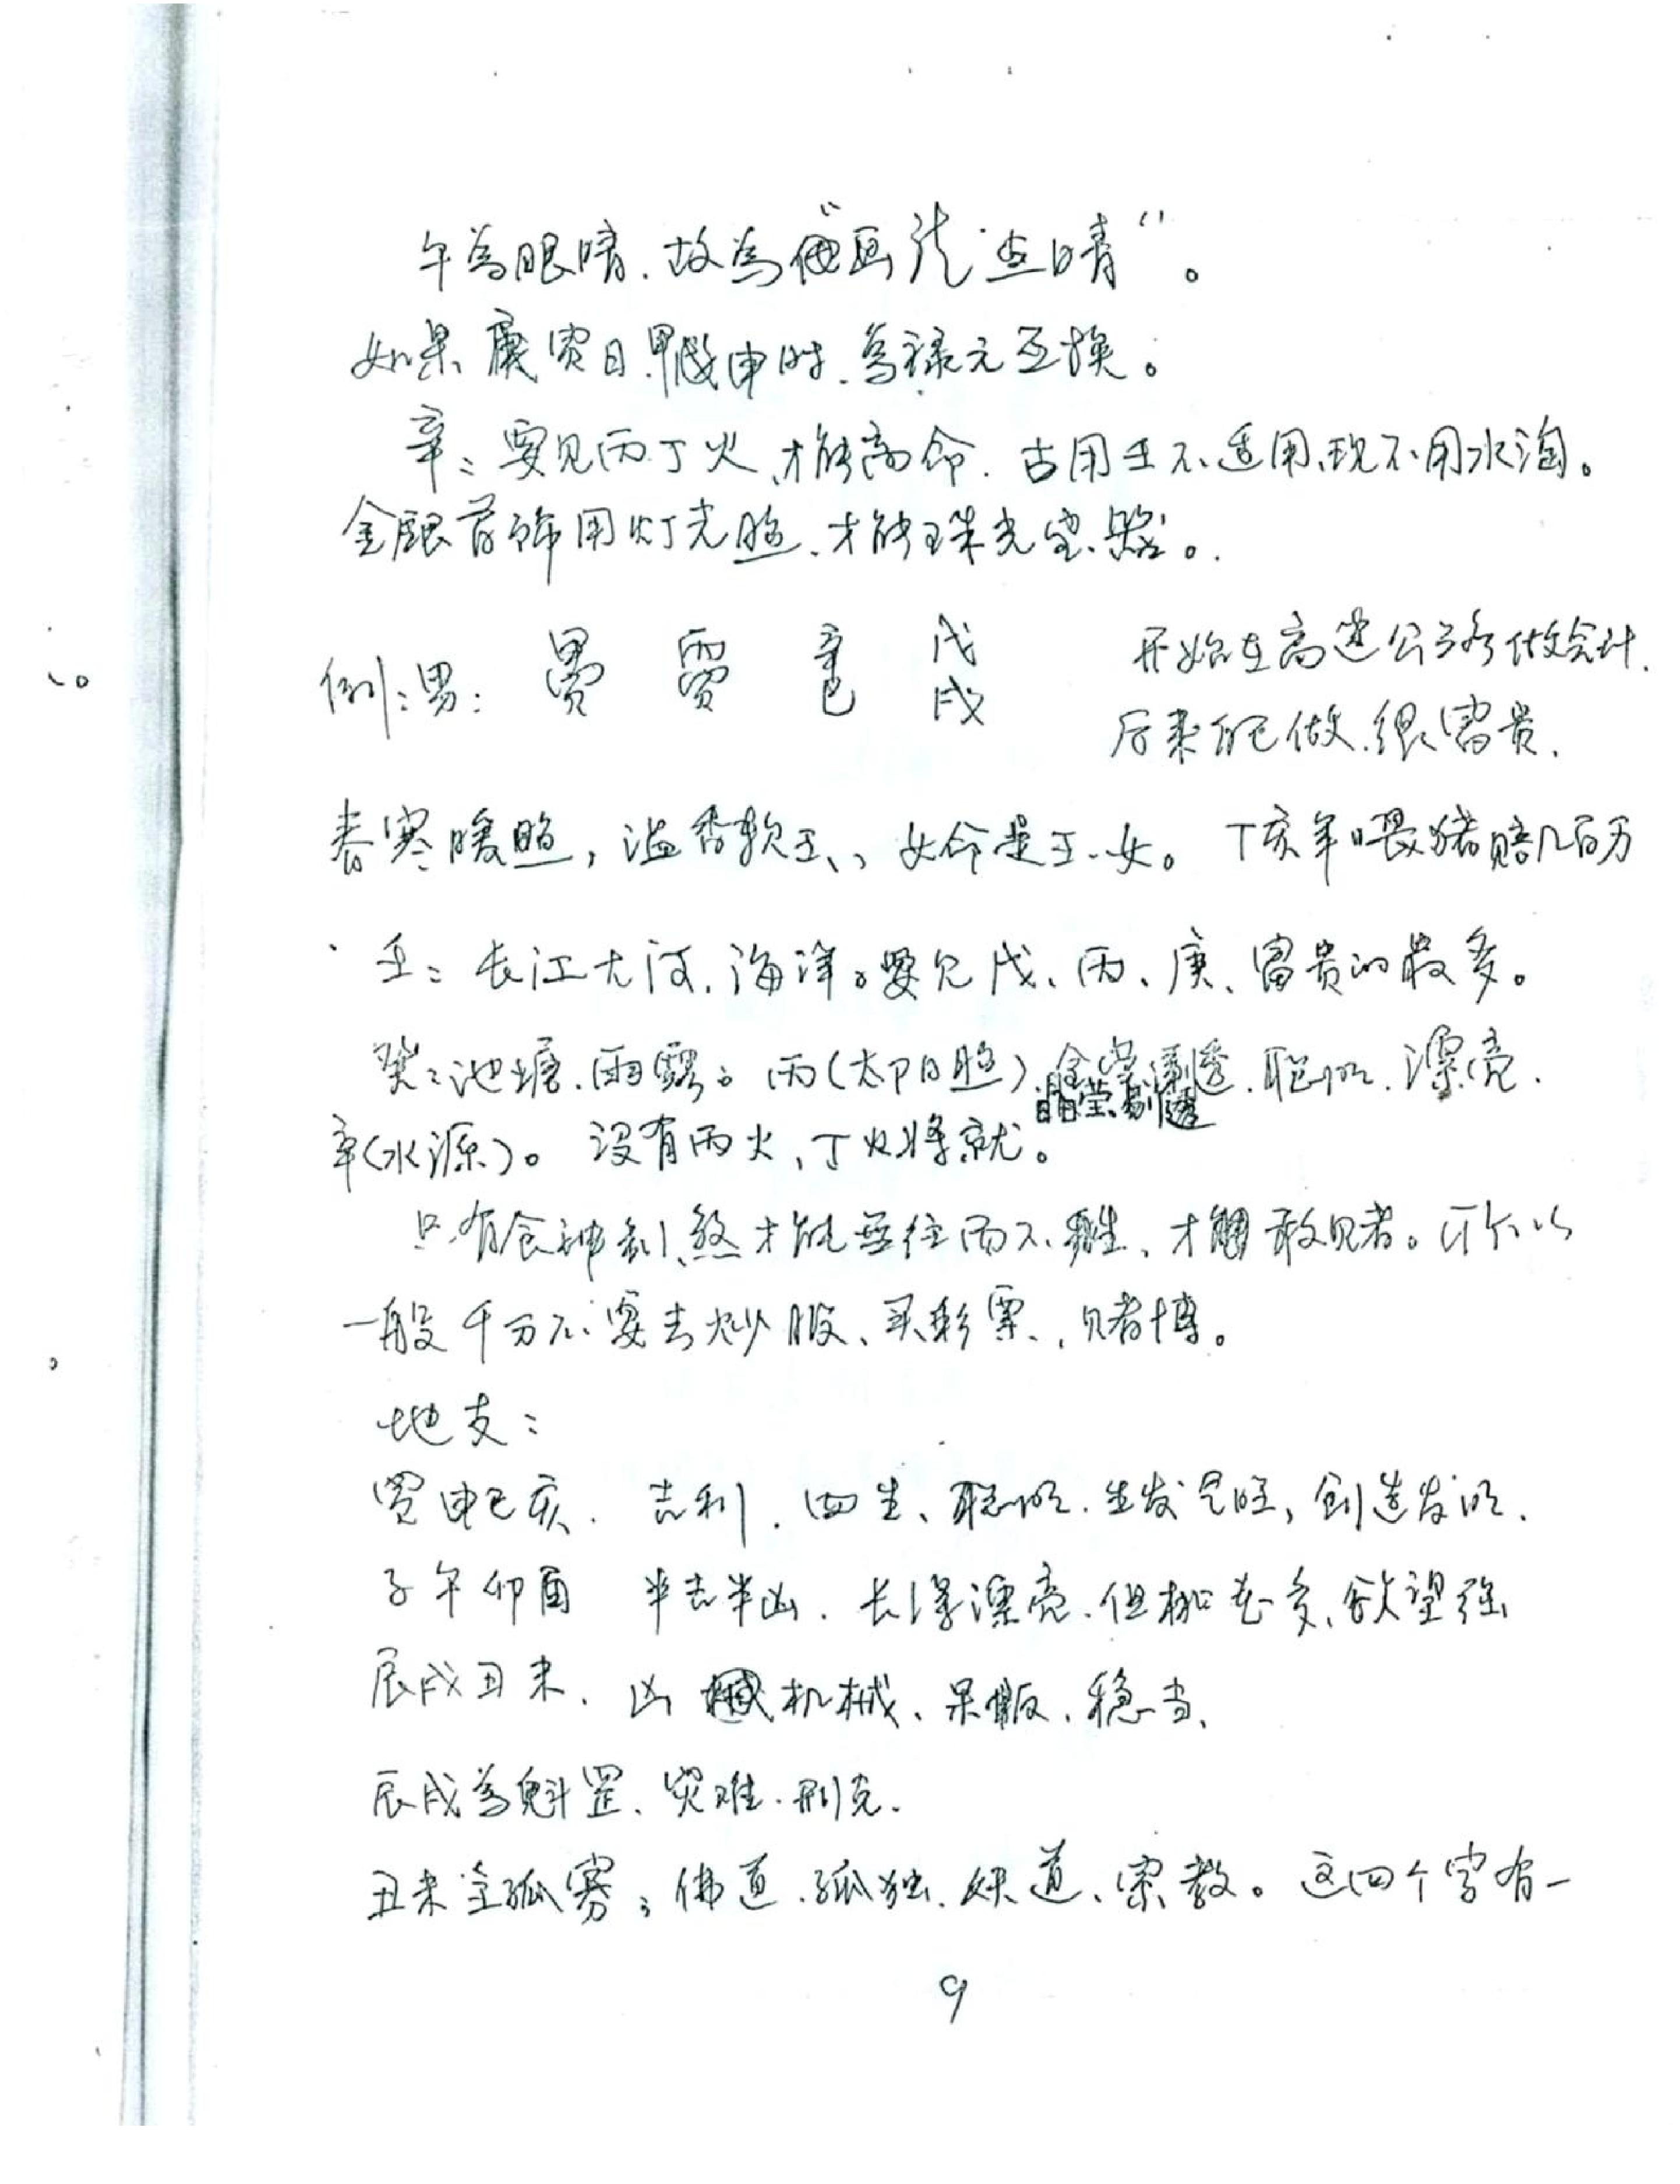 午为眼睛.故为“画龙点睛”。
如果庚寅日.甲申时.为禄元互换。
辛:要见丙丁火,才能高命.古用壬不适用,现不用水淘。
金银首饰用灯光照.才能珠光宝器。
例:男: 甲 丙 辛 戊 开始在高速公路做会计.
寅 寅 巳 戌 后来自己做.很富贵.
春寒暖照,温香软玉、,女命是玉女。丁亥年喂猪赔几百万
壬:长江大河.海洋。要见戊、丙、庚、富贵的最多。
癸:池塘.雨露。丙(太阳照).晶莹剔透.聪明.漂亮.
辛(水源)。没有丙火、丁火将就。
只有食神制煞才能无往而不胜、才敢见者。所以
一般千万不要去炒股、买彩票、赌博。
地支:
寅申巳亥.吉利.四生、聪明.生发兴旺,创造发明.
子午卯酉 半吉半凶.长得漂亮.但桃花多、欲望强
辰戌丑未.凶 机械、呆板.稳当、
辰戌为魁罡、灾难.刑克.
丑未主孤寡;佛道.孤独.妖道、宗教。这四个字有一
9